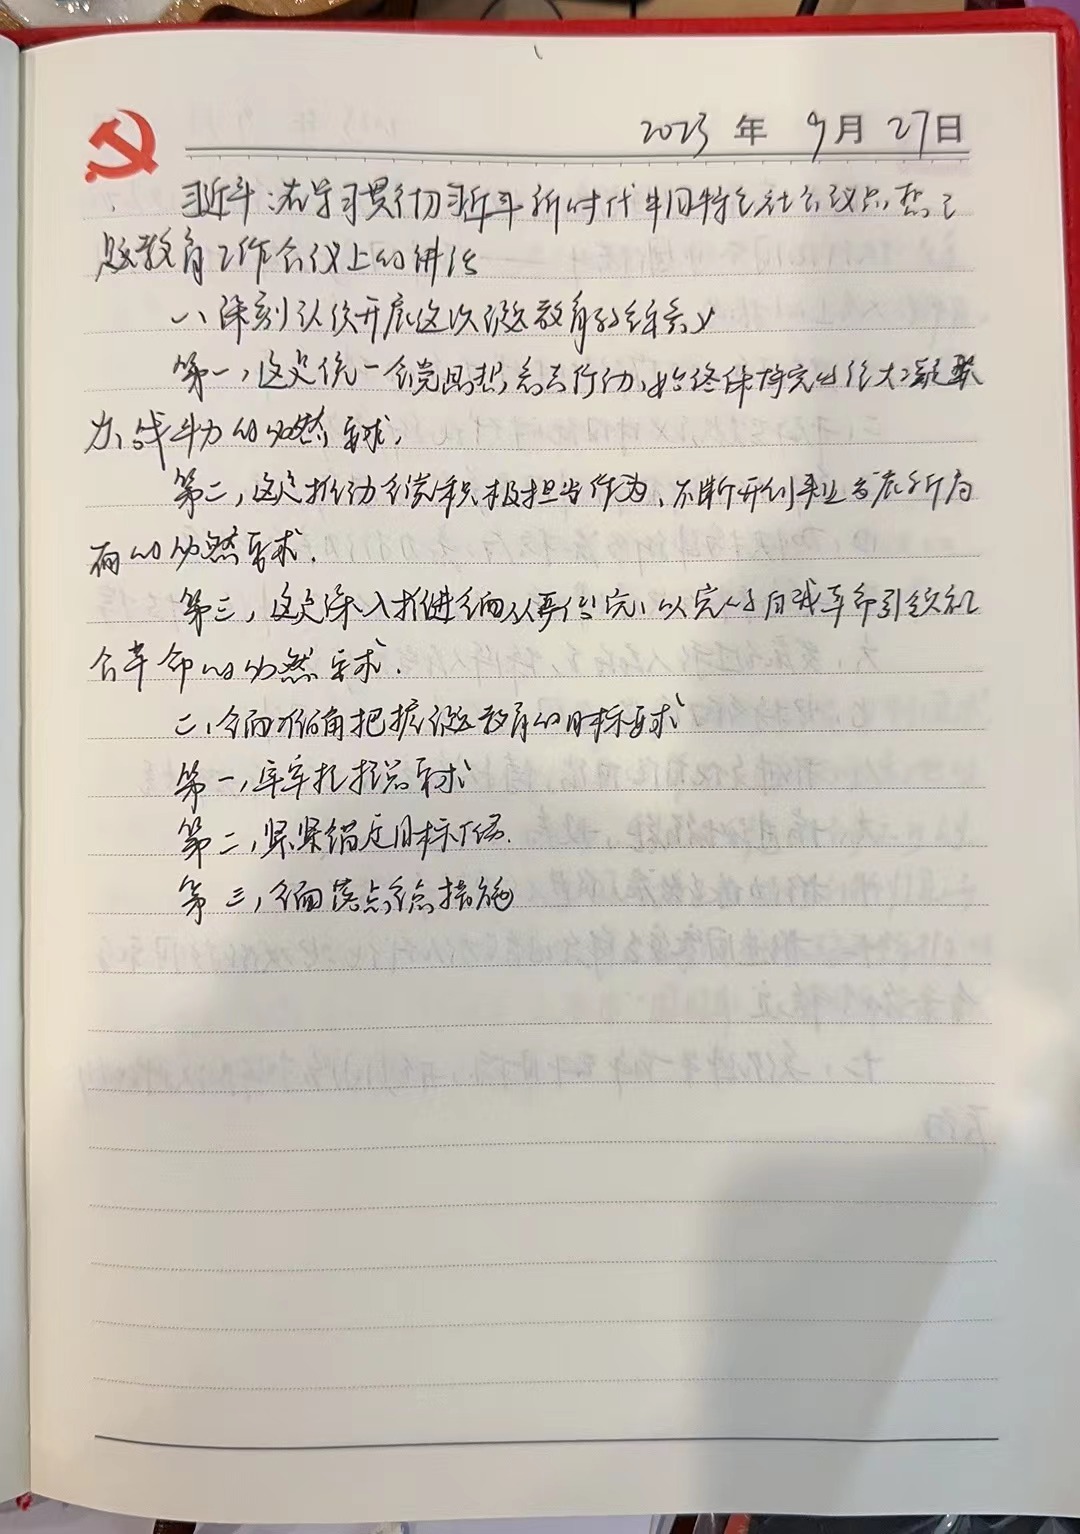 2023年 9月 27日
习近平:在学习贯彻习近平新时代中国特色社会主义思想主
题教育工作会议上的讲话
一、深刻认识开展这次主题教育的重大意义
第一,这是统一全党思想意志行动、始终保持党的强大凝聚
力、战斗力的必然要求,
第二,这是推动全党积极担当作为、不断开创事业发展新局
面的必然要求.
第三,这是深入推进全面从严治党、以党的自我革命引领社
会革命的必然要求.
二、全面准确把握主题教育的目标要求
第一,牢牢把握总要求
第二,紧紧锚定目标任务.
第三,全面落实重点措施